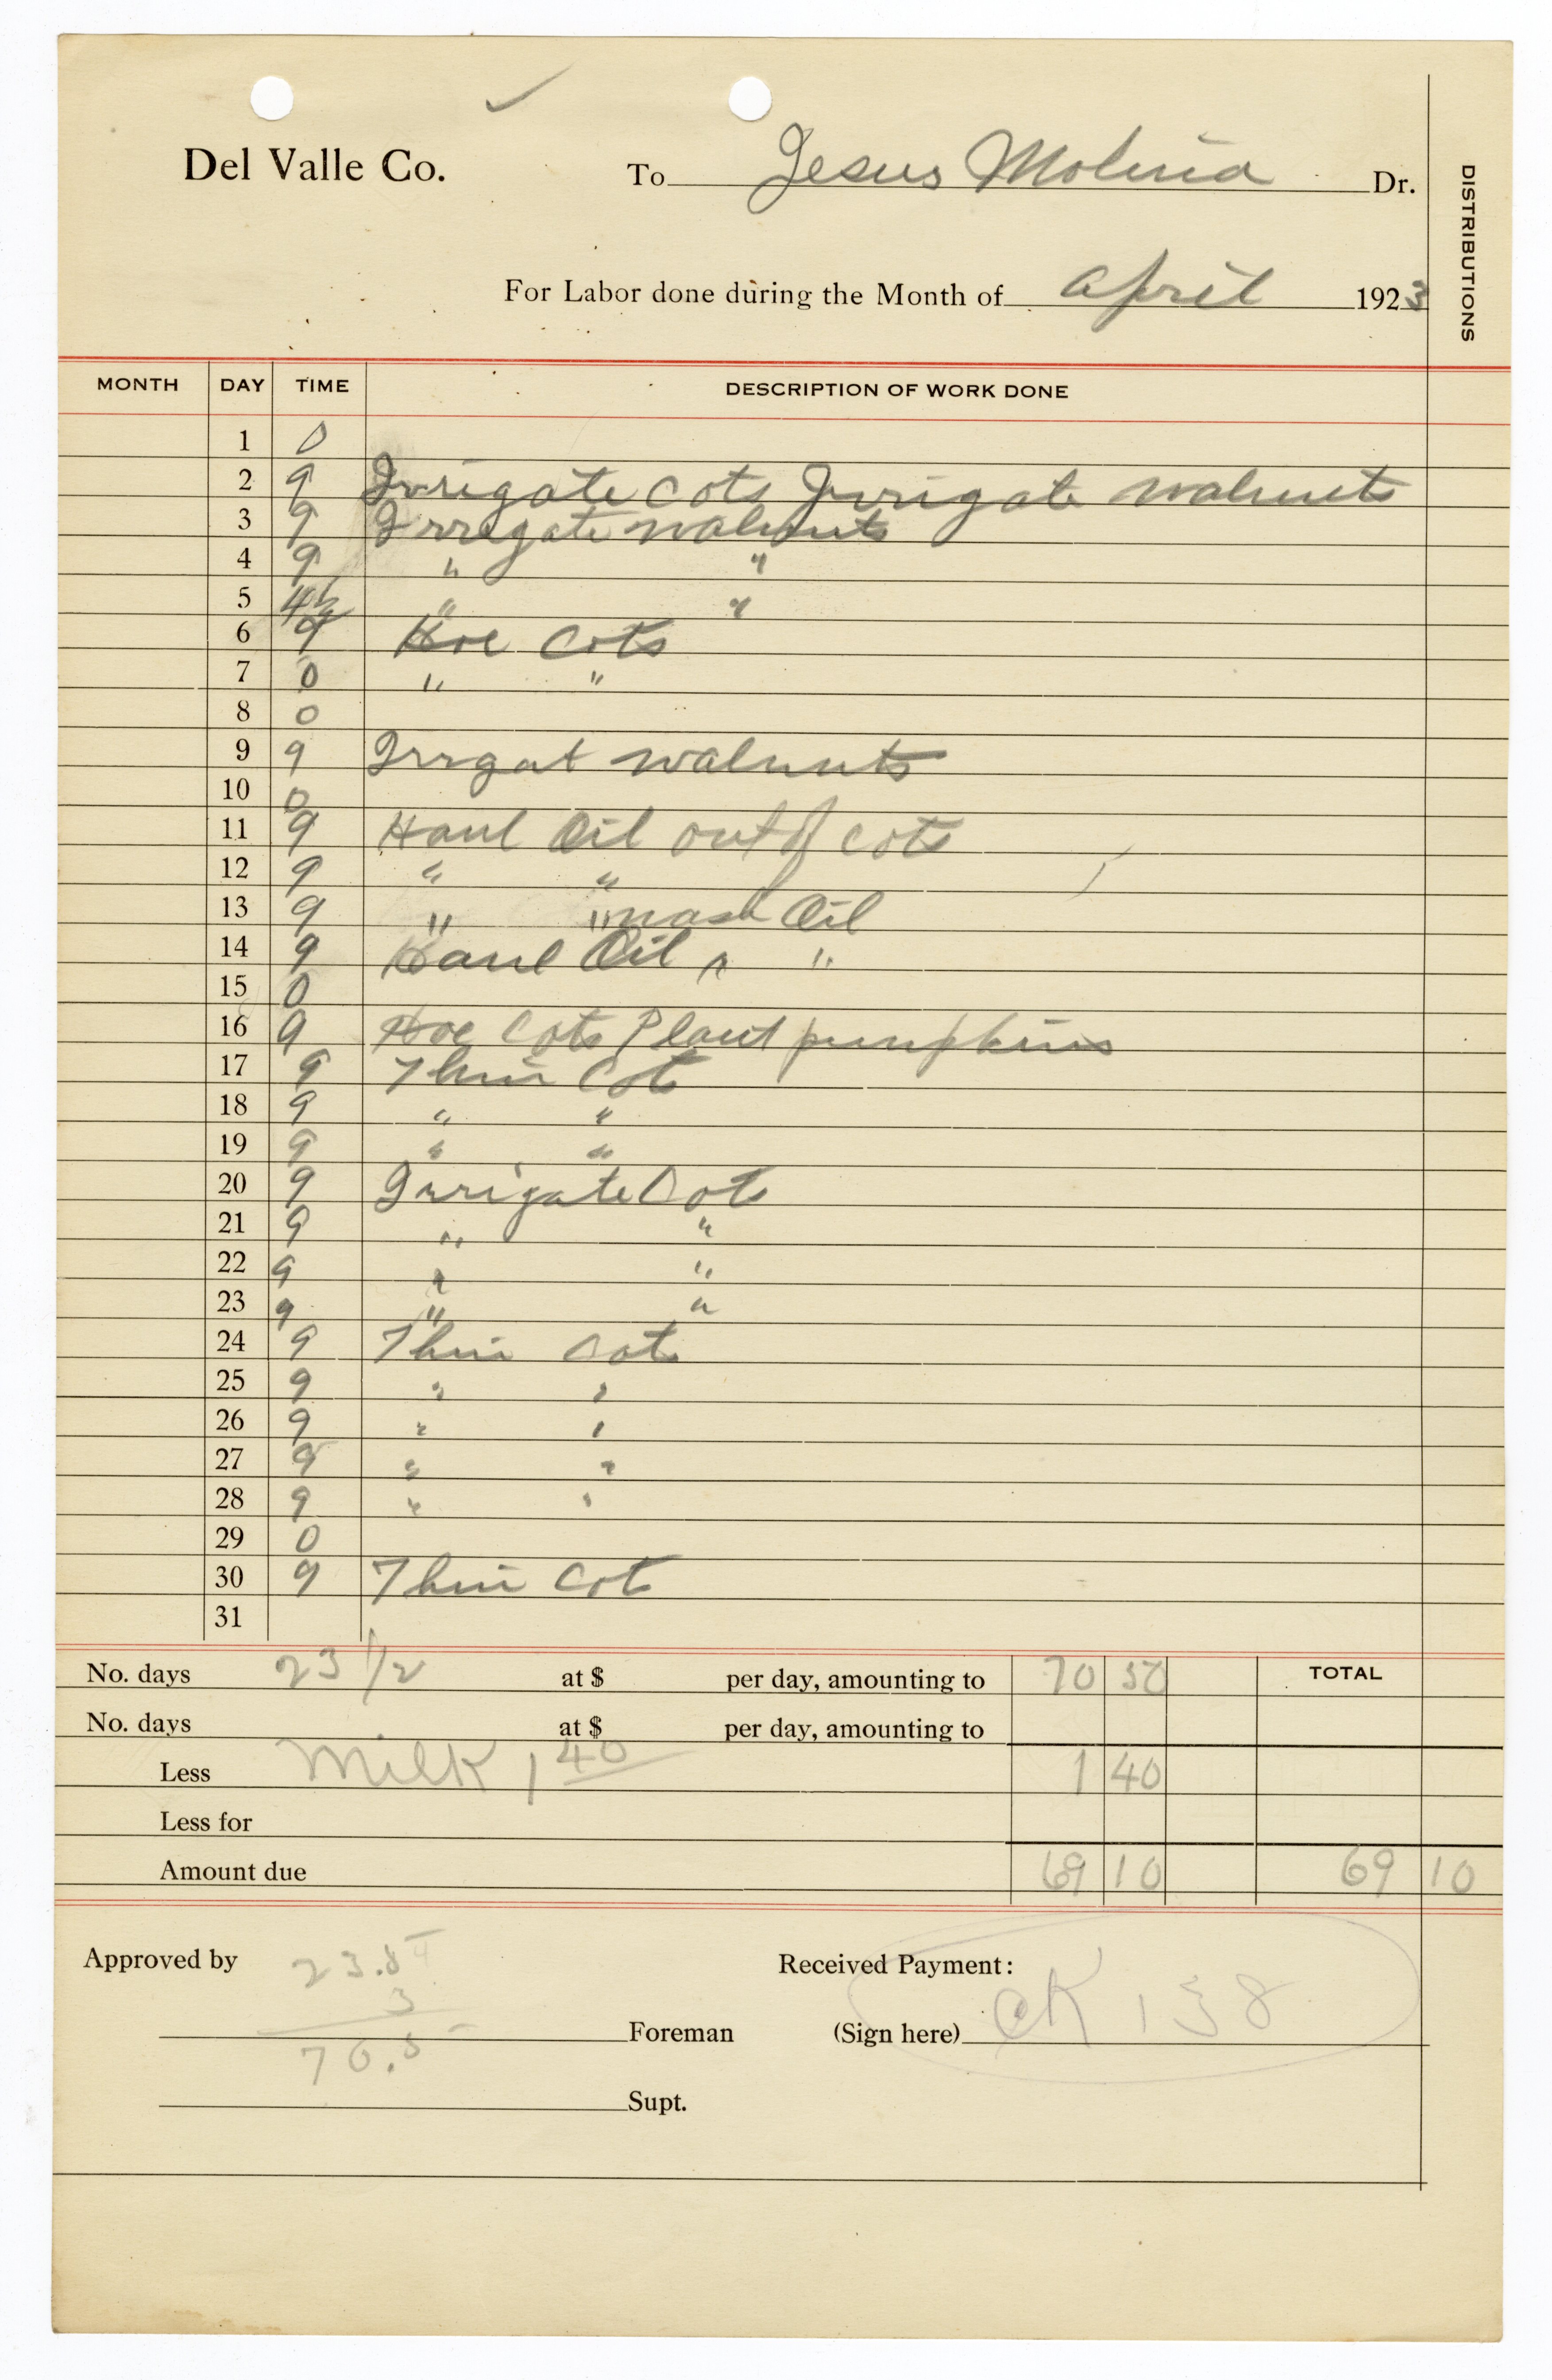 Del Valle Co. To Jesus Molina Dr.
DISTRIBUTIONS
For Labor done during the Month of April 1923
MONTH DAY TIME DESCRIPTION OF WORK DONE
1 0
2 9 Irrigate cots Irrigate walnuts
3 9 Irregate walnuts
4 9 " "
5 4½ " "
6 9 Hoe Cots
7 0 " "
8 0
9 9 Irrgat walnuts
10 0
11 9 Haul Oil out of cots
12 9 " "
13 9 " " wash Oil
14 9 Haul Oil " "
15 0
16 9 Hoe Cots Plant pumpkins
17 9 Thin Cot
18 9 " "
19 9 " "
20 9 Irrigate Cot
21 9 " "
22 9 " "
23 9 " "
24 9 Thin Cot
25 9 " "
26 9 " "
27 9 " "
28 9 " "
29 0
30 9 Thin Cot
31
No. days 23 1/2 at $ per day, amounting to 70 50 TOTAL
No. days at $ per day, amounting to
Less Milk 1 40 1 40
Less for
Amount due 69 10 69 10
Approved by 23.5 Received Payment:
3
Foreman (Sign here) CK 138
70.5
Supt.